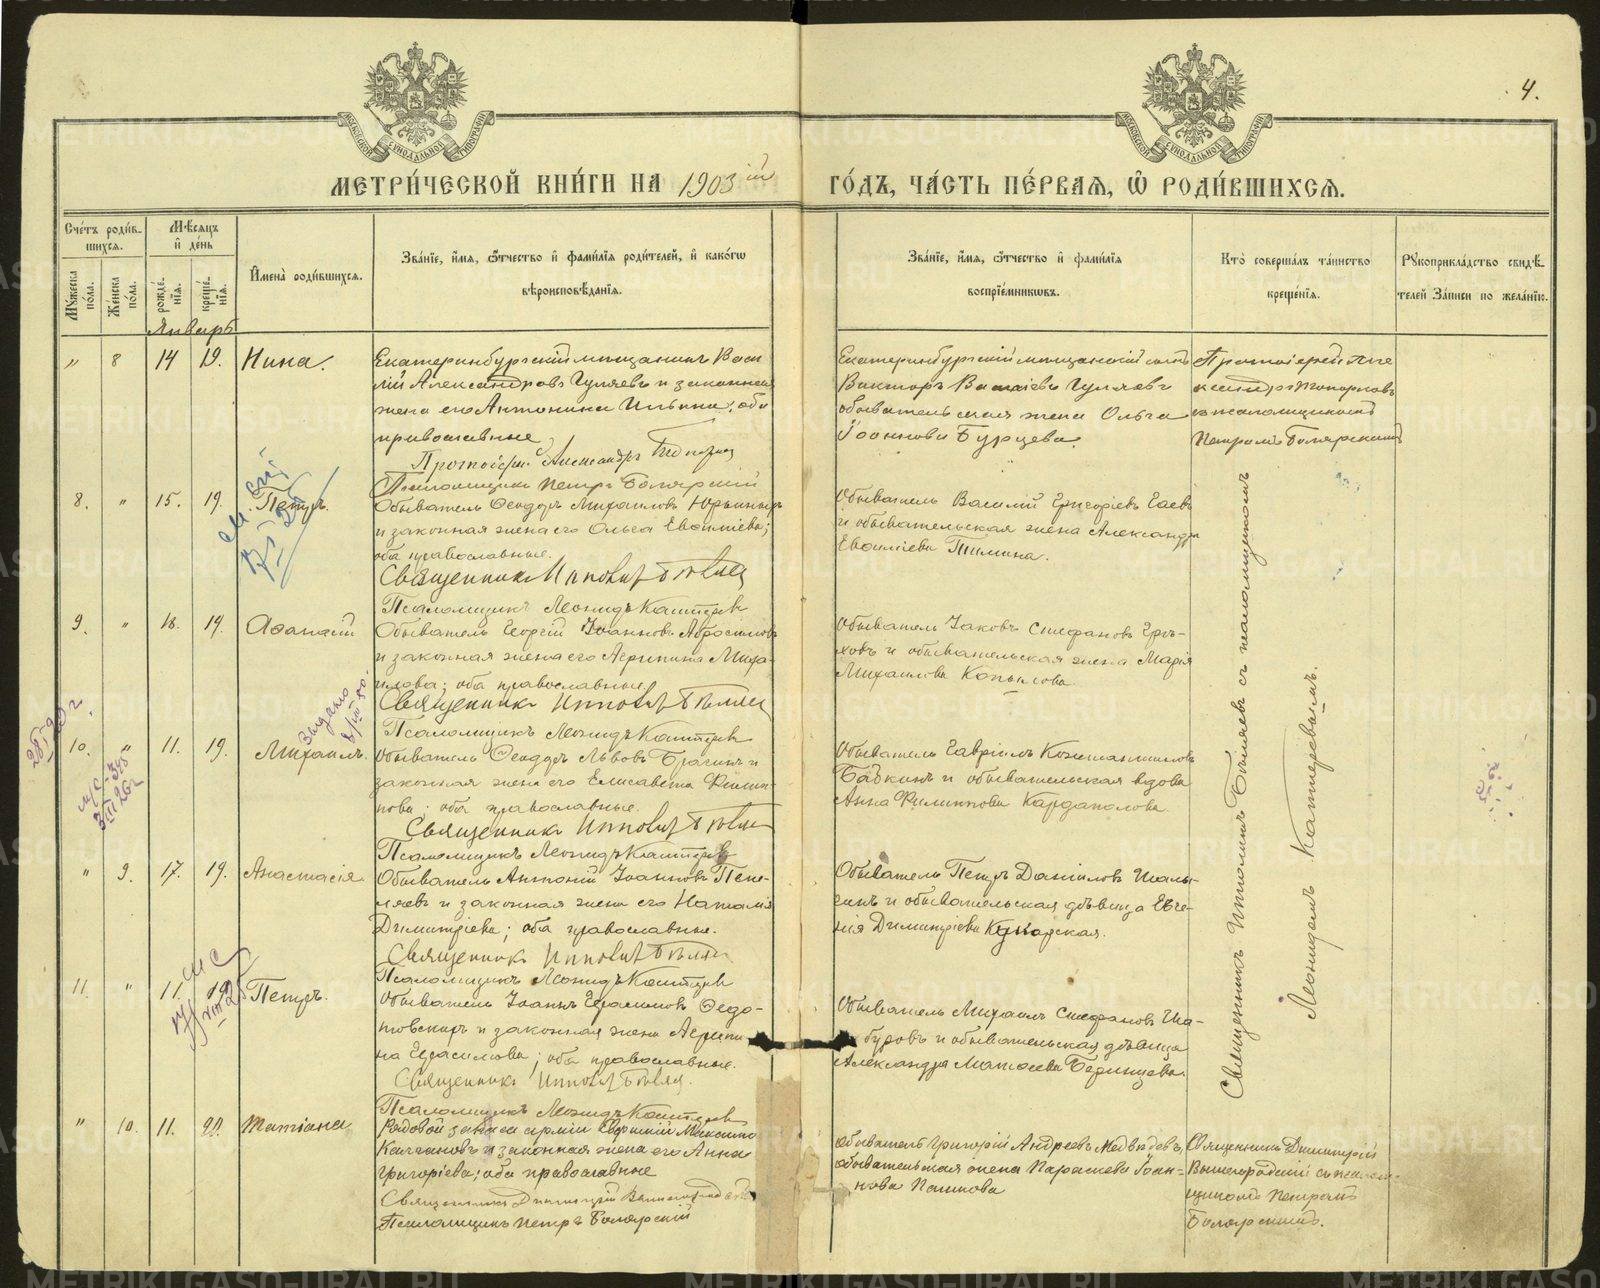 4.
МЕТРИ́ЧЕСКОЙ КНИ́ГИ НА 1903 ій
ГО́ДЪ, ЧА́СТЬ ПЕ́РВАЯ, Ѿ РОДИ́ВШИХСЯ.
Сче́тъ роди́в-
шихся.
Мꙋ́жеска по́ла.
Же́нска по́ла.
Мѣ́сяцъ и де́нь
рожде́-нїя.
креще́-нїя.
Имена̀ роди́вшихся.
Зва́нїе, и́мя, ѻ҆́тчество и фами́лїя роди́телей, и како́гѡ
вѣроисповѣ́данїя.
Зва́нїе, и́мя, ѻ҆́тчество и фами́лїя
воспрїе́мниковъ.
Кто̀ соверша́лъ та́инство
креще́нїя.
Рꙋкоприкла́дство свидѣ́-
телей За́писи по жела́нїю.
Январь
" 8 14 19. Нина.
Екатеринбургскій мѣщанинъ Васи
лій Александровъ Гуляевъ и законная
жена его Антонина Ильина; оба
православные
Протоіерей Александръ Топорковъ
Псаломщикъ Петръ Боярскій
Екатеринбургскій мѣщанскій сынъ
Викторъ Василіевъ Гуляевъ
обывательская жена Ольга
Іоаннова Бурцева.
Протоіерей Але
ксандръ Топорковъ
съ псаломщикомъ
Петромъ Боярскимъ
8. " 15. 19. Петръ.
Обыватель Ѳеодоръ Михаиловъ
и законная жена его Ольга Евѳиміева;
оба православные.
Священникъ Ипполитъ Бѣляевъ
Псаломщикъ Леонидъ Каптеревъ
Обыватель Василій Григоріевъ Гаевъ
и обывательская жена Александра
Евѳиміева Тимина.
9. " 18. 19. Аѳанасій
Обыватель Георгій Іоанновъ Абросимовъ
и законная жена его Агрипина Миха-
илова; оба православные.
Священникъ Ипполитъ Бѣляевъ
Псаломщикъ Леонидъ Каптеревъ
Обыватель Іаковъ Стефановъ
ховъ и обывательская жена Марія
Михаилова Копылова
10. " 11. 19. Михаилъ.
выдано
Обыватель Ѳеодоръ Львовъ Брагинъ и
законная жена его Елисавета Филип-
пова; оба православные.
Священникъ Ипполитъ Бѣляевъ
Псаломщикъ Леонидъ Каптеревъ
Обыватель Гавріилъ Константиновъ
Бабкинъ и обывательская вдова
Анна Филиппова Кардаполова
" 9. 17. 19. Анастасія
Обыватель Антоній Іоанновъ Пепе-
ляевъ и законная жена его Наталія
Димитріева; оба православные.
Священникъ Ипполитъ Бѣляевъ
Псаломщикъ Леонидъ Каптеревъ
Обыватель Петръ Даніиловъ
и обывательская дѣвица Евге-
нія Димитріева Кукарская.
11. " 11. 19. Петръ.
Обыватель Іоаннъ Ѳедо-
товскихъ и законная жена Агрипи-
на Герасимова; оба православные.
Священникъ Ипполитъ Бѣляевъ.
Псаломщикъ Леонидъ Каптеревъ
Обыватель Михаилъ Стефановъ Ша-
буровъ и обывательская дѣвица
Александра Матѳеева Беринцева.
Священникъ Ипполитъ Бѣляевъ съ псаломщикомъ
Леонидомъ Каптеревымъ.
" 10. 11. Татіана
Рядовой запаса арміи Евгеній Максимо
Калгановъ и законная жена его Анна
Григоріева; оба православные
Священникъ Димитрій Вышегородскій
Псаломщикъ Петръ Боярскій
Обыватель Григорій Андреевъ Медвѣдевъ
обывательская жена Параскева Іоан-
нова Пашкова
Священникъ Димитрій
Вышегородскій съ псалом-
щикомъ Петромъ
Боярскимъ.